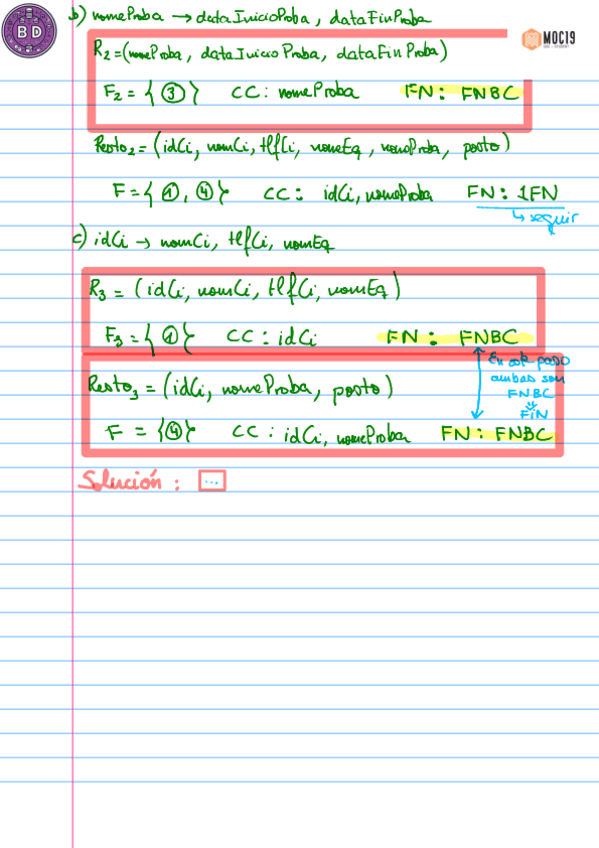 BD
MOC19
b) nomeProba → dataInicioProba, dataFinProba
R2 = (nomeProba, dataInicioProba, dataFinProba)
F2 = { ③ } CC: nomeProba FN: FNBC
Resto2 = (idCi, nomCi, tlfCi, nomeEq, nomeProba, posto)
F = { ①, ④ } CC: idCi, nomeProba FN: 1FN
↳ seguir
c) idCi → nomCi, tlfCi, nomEq
R3 = (idCi, nomCi, tlfCi, nomEq)
F3 = { ① } CC: idCi FN: FNBC
En este paso
ambas son
FNBC
⇓
FIN
Resto3 = (idCi, nomeProba, posto)
F = { ④ } CC: idCi, nomeProba FN: FNBC
Solución: ...